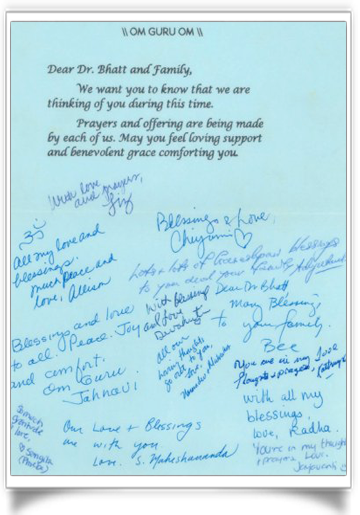 \\ OM GURU OM \\
Dear Dr. Bhatt and Family,
We want you to know that we are
thinking of you during this time.
Prayers and offering are being made
by each of us. May you feel loving support
and benevolent grace comforting you.
With love
and prayers,
ॐ
All my love and
blessings.
Much peace and
love, Allison
Blessings & Love,
Lots & lots of blessings
to you dear your family
With blessing
and love
Dear Dr. Bhatt
Many Blessing,
to your family.
Bee
Blessings and love
to all. Peace. Joy
and comfort.
Om Guru
Jahnavi
All our
loving thoughts
go out to you,
Love,
You are in my love
thoughts & prayers.
with all my
blessings.
love, Radha.
gratitude
love,
Our Love & Blessings
are with you
Love. S. Maheshananda
Yours in my thoughts
& prayers, Love.